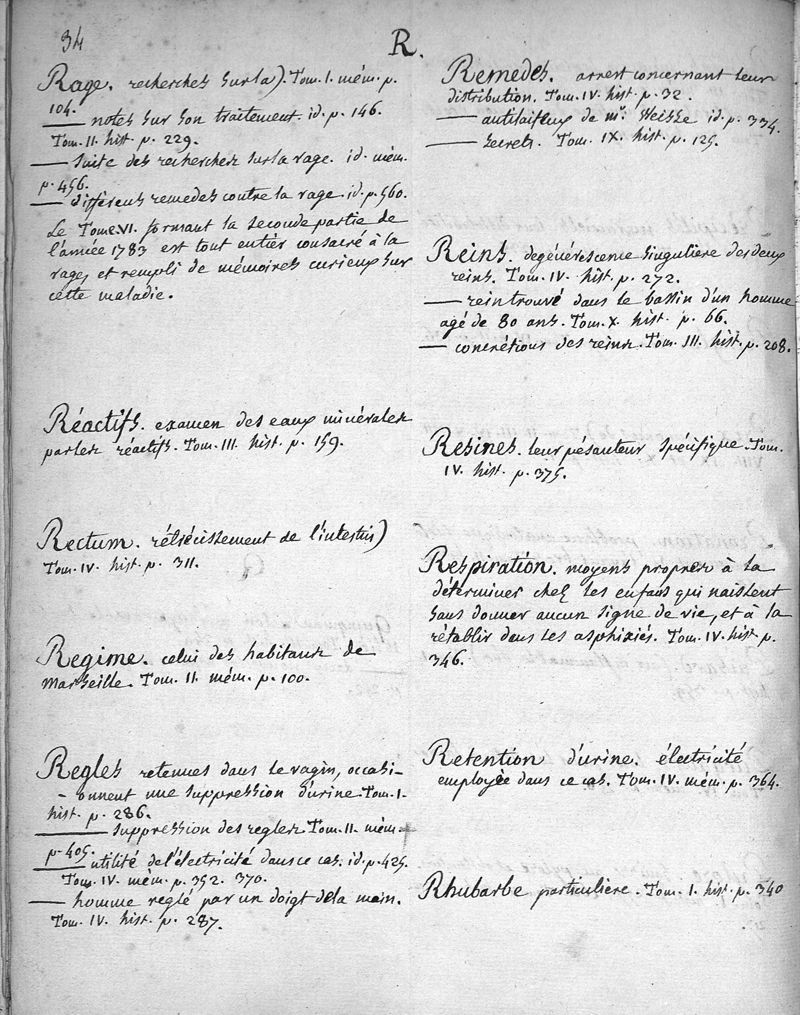 34
R.
Rage. recherches sur la). Tom. I. mém. p.
104.
— notes sur son traitement. id. p. 146.
Tom. II. hist. p. 229.
— Suite des recherches sur la rage. id. mém.
p. 456.
— différens remedes contre la rage id. p. 560.
Le Tome VI. formant la seconde partie de
l'année 1783 est tout entier consacré à la
rage, et rempli de mémoires curieux sur
cette maladie.
Réactifs. examen des eaux minérales
par les réactifs. Tom. III. hist. p. 159.
Rectum. rétrécissement de l'intestin)
Tom. IV. hist. p. 311.
Regime. celui des habitans de
Marseille. Tom. II. mém. p. 100.
Regles retenues dans le vagin, occasi-
- onnent une suppression d'urine Tom. I.
hist. p. 286.
— suppression des regles Tom. II. mém.
p. 405.
— utilité de l'électricité dans ce cas. id. p. 425.
Tom. IV. mém. p. 352. 370.
— homme reglé par un doigt de la main.
Tom. IV. hist. p. 287.
Remedes. arrest concernant leur
distribution. Tom. IV. hist. p. 32.
— antilaiteux de mr. Weisse id. p. 334.
— secrets. Tom. IX. hist. p. 125.
Reins. degénérescence singuliere des deux
reins. Tom. IV. hist. p. 272.
— rein trouvé dans le bassin d'un homme
agé de 80 ans. Tom. X. hist. p. 66.
— concrétions des reins. Tom. III. hist. p. 208.
Resines. leur pésanteur spécifique. Tom.
IV. hist. p. 375.
Respiration. moyens propres à la
déterminer chez les enfans qui naissent
sans donner aucun signe de vie, et à la
rétablir dans les asphixiés. Tom. IV. hist. p.
346.
Retention d'urine. électricité
employée dans ce cas. Tom. IV. mém. p. 364.
Rhubarbe particuliere. Tom. I. hist. p. 340